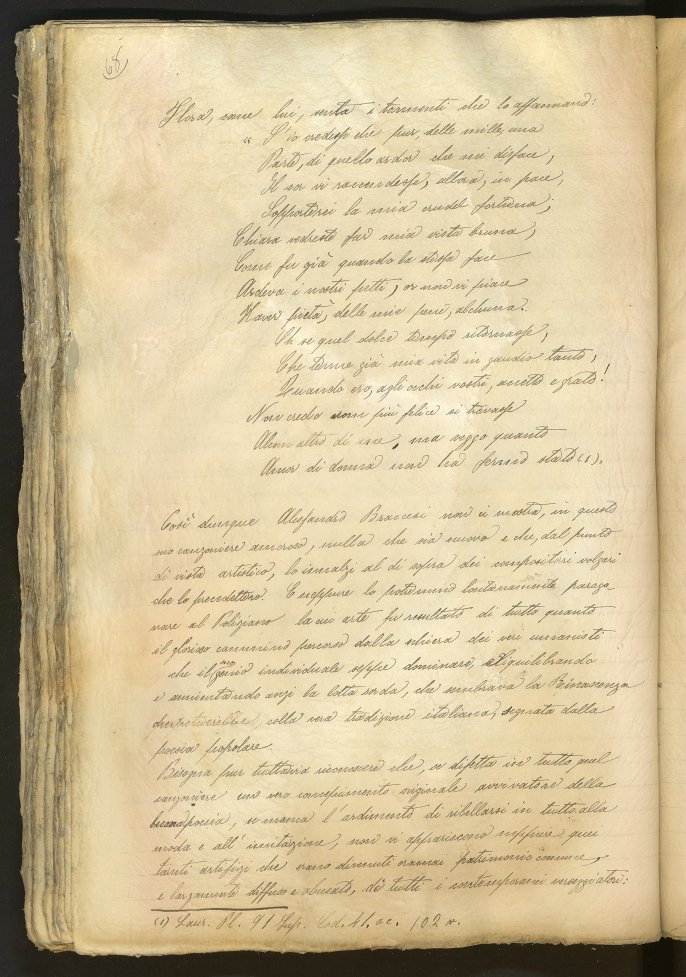 68
Flora, come lui, senta i tormenti che lo affannano:
" S'io credessi che pur delle mille, una
Parte, di quello ardor che mi disface,
Il cor vi raccendesse, allora, in pace,
Sopporterei la mia crudel fortuna;
Chiara vedreste far mia vista bruna,
Come fu già quando la stessa face
Ardeva i nostri petti, or non vi piace
Haver pietà, delle mie pene, alchuna.
Oh se quel dolce tempo ritornasse,
Che tenne già mia vita in gaudio tanto,
Quando ero, agli occhi vostri, accetto e grato!
Non credo uom più felice si trovasse
Alcun altro di me, ma veggo quanto
Amor di donna non ha fermo stato (1).
Così dunque Alessandro Braccesi non ci mostra, in questo
suo canzoniere amoroso, nulla che sia nuovo e che, dal punto
di vista artistico, lo innalzi al di sopra dei compositori volgari
che lo precedettero. E neppure lo potremmo lontanamente parago-
nare al Poliziano la cui arte fu resultato di tutto quanto
il glorioso cammino percorso dalla schiera dei veri umanisti
che il suo genio individuale seppe dominare, equilibrando
e ammentando anzi la lotta sorda, che sembrava la Rinascenza
colla vera tradizione italiana, segnata dalla
poesia popolare.
Bisogna pur tuttavia riconoscere che, se difetta in tutto quel
canzoniere un vero concepimento originale avvivatore della
buona poesia, se manca l'ardimento di ribellarsi in tutto alla
moda e all'imitazione, non vi appariscono neppure, quei
tanti artifizi che erano divenuti oramai patrimonio comune,
e largamente diffuso e abusato, di tutti i contemporanei verseggiatori:
(1) Laur. Pl. 91 Sup. Cod. 41. ac. 102 v.